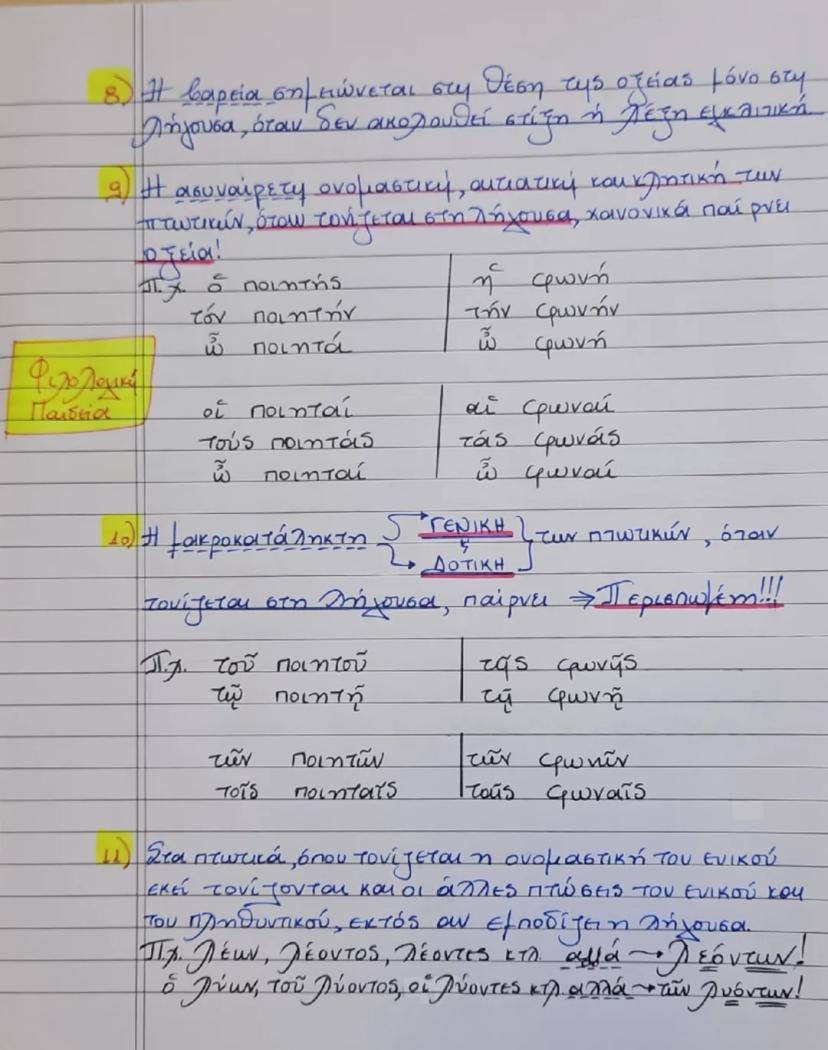 8) Η βαρεία σημειώνεται στη θέση της οξείας μόνο στη
λήγουσα, όταν δεν ακολουθεί στίξη ή λέξη εγκλιτική
9) Η ασυναίρετη ονομαστική, αιτιατική και κλητική των
πτωτικών, όταν τονίζεται στη λήγουσα, κανονικά παίρνει
οξεία!
Π.χ. ὁ ποιητής | ἡ φωνή
τόν ποιητήν | τήν φωνήν
ὦ ποιητά | ὦ φωνή
Φιλολογική
Παιδεία
οἱ ποιηταί | αἱ φωναί
τούς ποιητάς | τάς φωνάς
ὦ ποιηταί | ὦ φωναί
10) Η μακροκατάληκτη → ΓΕΝΙΚΗ των πτωτικών, όταν
ς
→ ΔΟΤΙΚΗ
τονίζεται στη λήγουσα, παίρνει ⇒ Περισπωμένη!!!
Π.χ. τοῦ ποιητοῦ | τῆς φωνῆς
τῷ ποιητῇ | τῇ φωνῇ
τῶν ποιητῶν | τῶν φωνῶν
τοῖς ποιηταῖς | ταῖς φωναῖς
11) Στα πτωτικά, όπου τονίζεται η ονομαστική του ενικού
εκεί τονίζονται και οι άλλες πτώσεις του ενικού και
του πληθυντικού, εκτός αν εμποδίζει η λήγουσα.
Π.χ. λέων, λέοντος, λέοντες κτλ. αλλά → λεόντων!
ὁ λύων, τοῦ λύοντος, οἱ λύοντες κτλ αλλά → τῶν λυόντων!